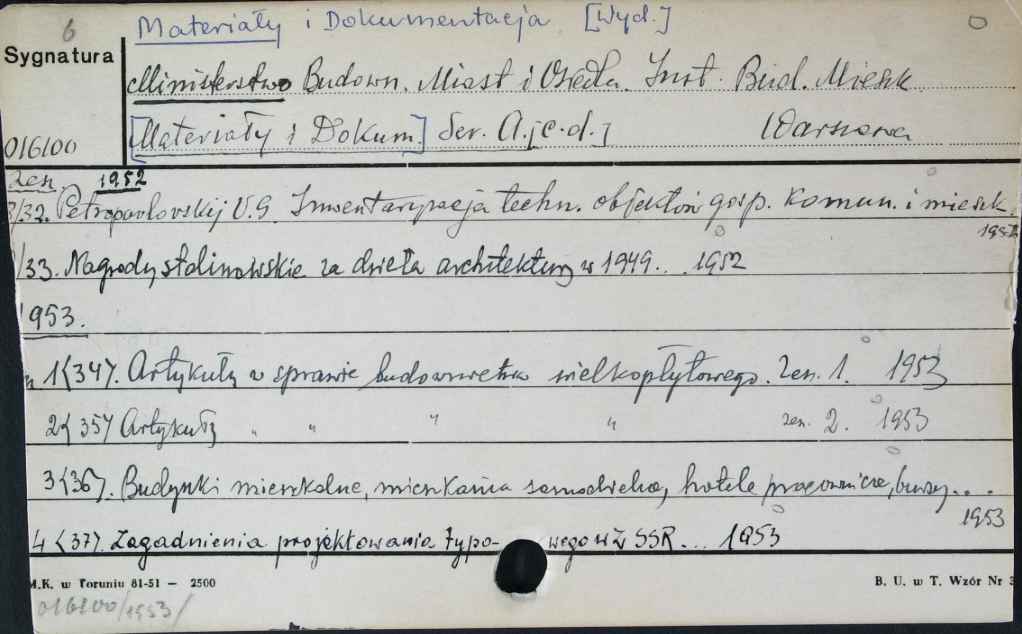 6 Materiały i Dokumentacja [Wyd.]
Sygnatura
Ministerstwo Budown. Miast i Osiedla. Inst. Bud. Mieszk
016100
[Materiały i Dokum.] Ser. A. [c.d.] Warszawa
Zesz. 1952
/32. Petropavlovskij V.G. Inwentaryzacja techn. obiektów gosp. komun. i mieszk. 1952
/33. Nagrody stalinowskie za dzieła architektury w 1949... 1952
1953.
1(34). Artykuły w sprawie budownictwa wielkopłytowego. Zesz. 1. 1953
2(35) Artykuły " " " " zesz. 2. 1953
3(36). Budynki mieszkalne, mieszkania samodzielne, hotele pracownicze, bursy... 1953
4(37). Zagadnienia projektowania typowego w Z SSR... 1953
M.K. w Toruniu 81-51 — 2500
B. U. w T. Wzór Nr 3
016100/1953/